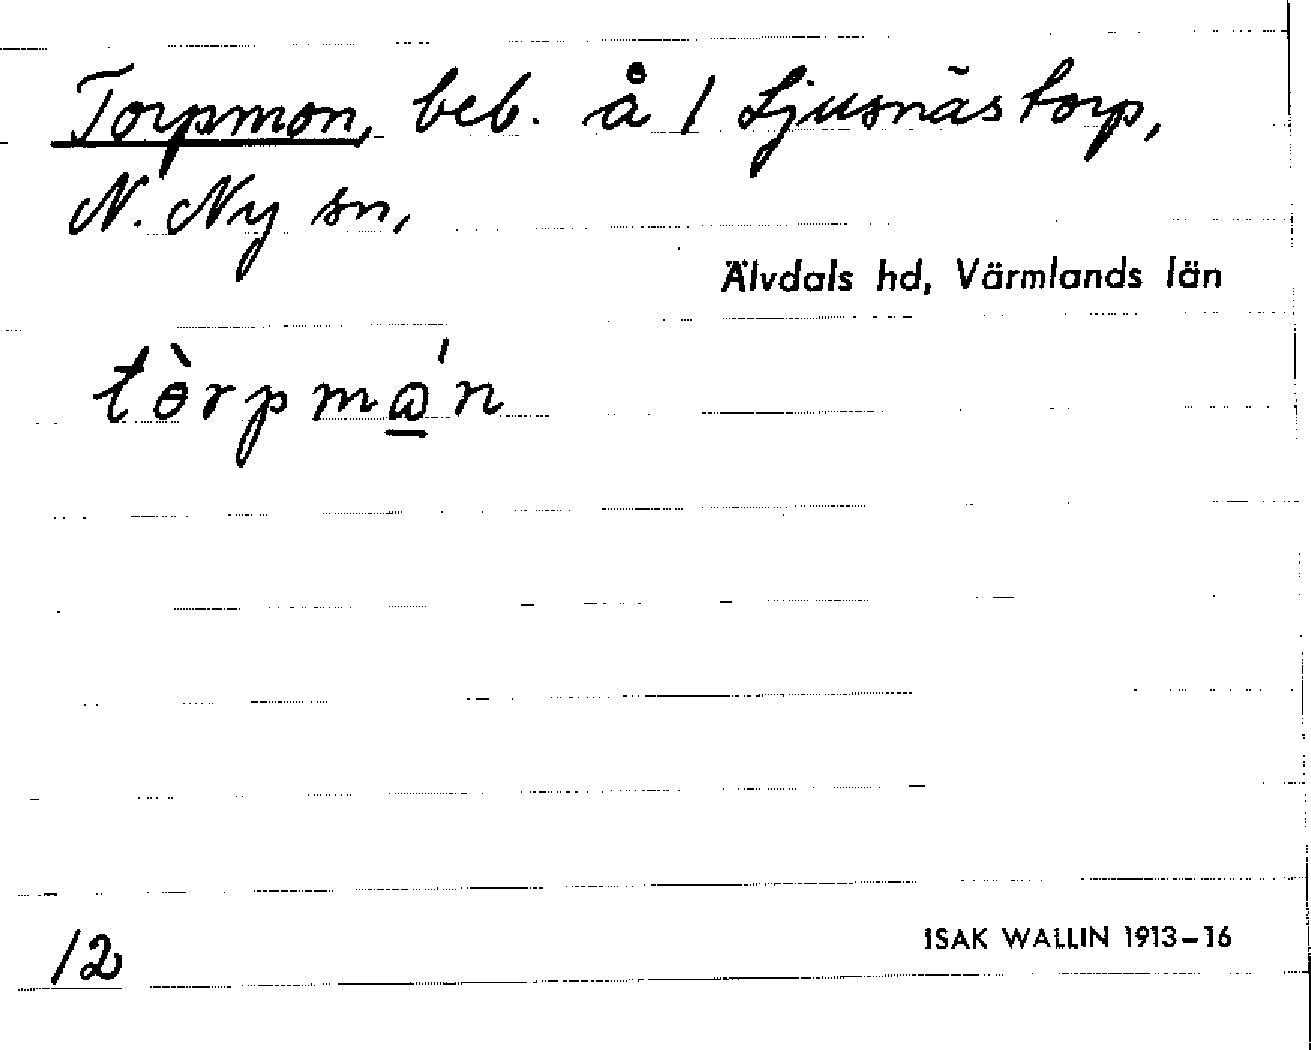 Torpmon, beb. å 1 Ljusnästorp,
N. Ny sn,
Älvdals hd, Värmlands län
tɵ̀rpmⱺ̲́n
12
ISAK WALLIN 1913–16